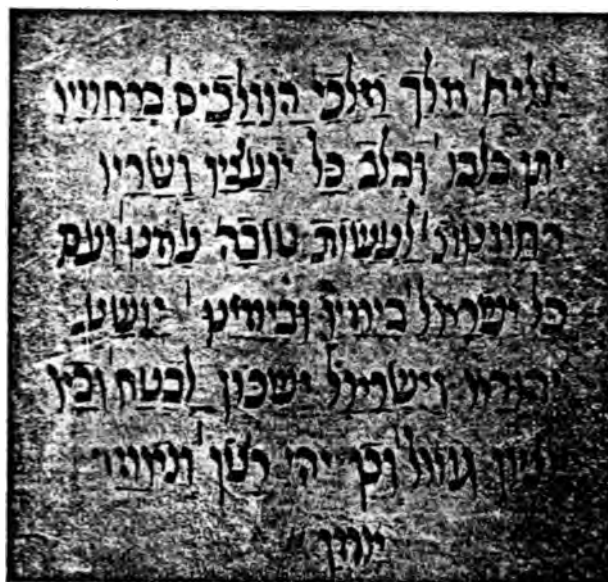 מלך מלכי המלכים ברחמיו
יתן בלבו ובלב כל יועציו ושריו
רחמנות לעשות טובה עמנו ועם
כל ישראל בימיו ובימינו תושע
יהודה וישראל ישכון לבטח ובא
לציון גואל וכן יהי רצון ונאמר
אמן